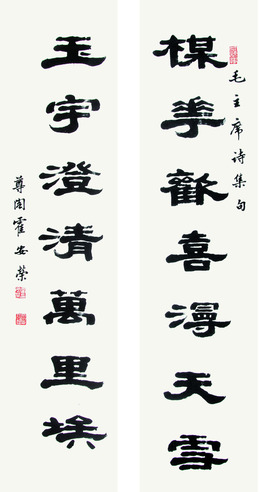 毛主席诗集句
楳華歡喜漫天雪
玉宇澄清萬里埃
尊周霍安榮